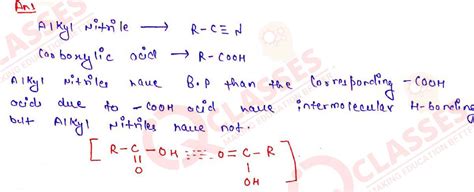 Ans
Alkyl nitrile → R-C≡N
Carboxylic acid → R-COOH
Alkyl nitriles have B.P than the corresponding -COOH
acids due to -COOH acid have intermolecular H-bonding
but Alkyl nitriles have not.
[ R-C-OH ::::: O=C-R ]
O OH
CLASSES